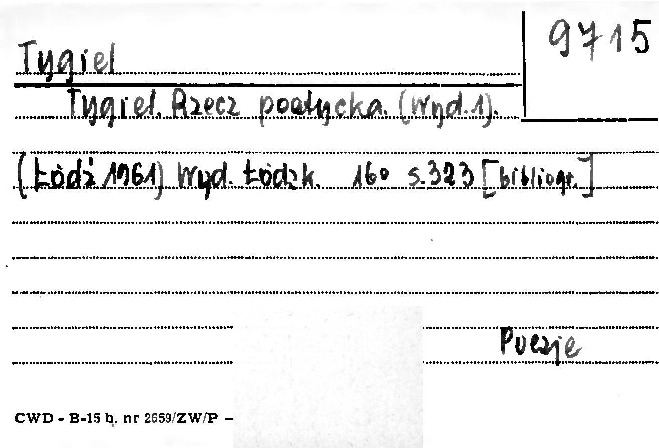 9715
Tygiel
Tygiel. Rzecz poetycka. (Wyd. 1).
(Łódź 1961) Wyd. Łódzk. 16° s. 323 [bibliogr.]
Poezje
CWD - B-15 b. nr 2659/ZW/P –